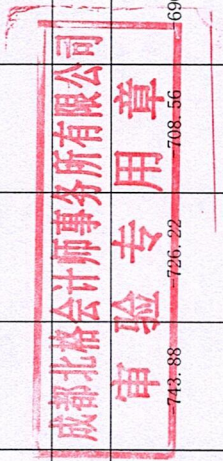 成都北辂会计师事务所有限公司
审验专用章
-743.88 -726.22 -708.56 69